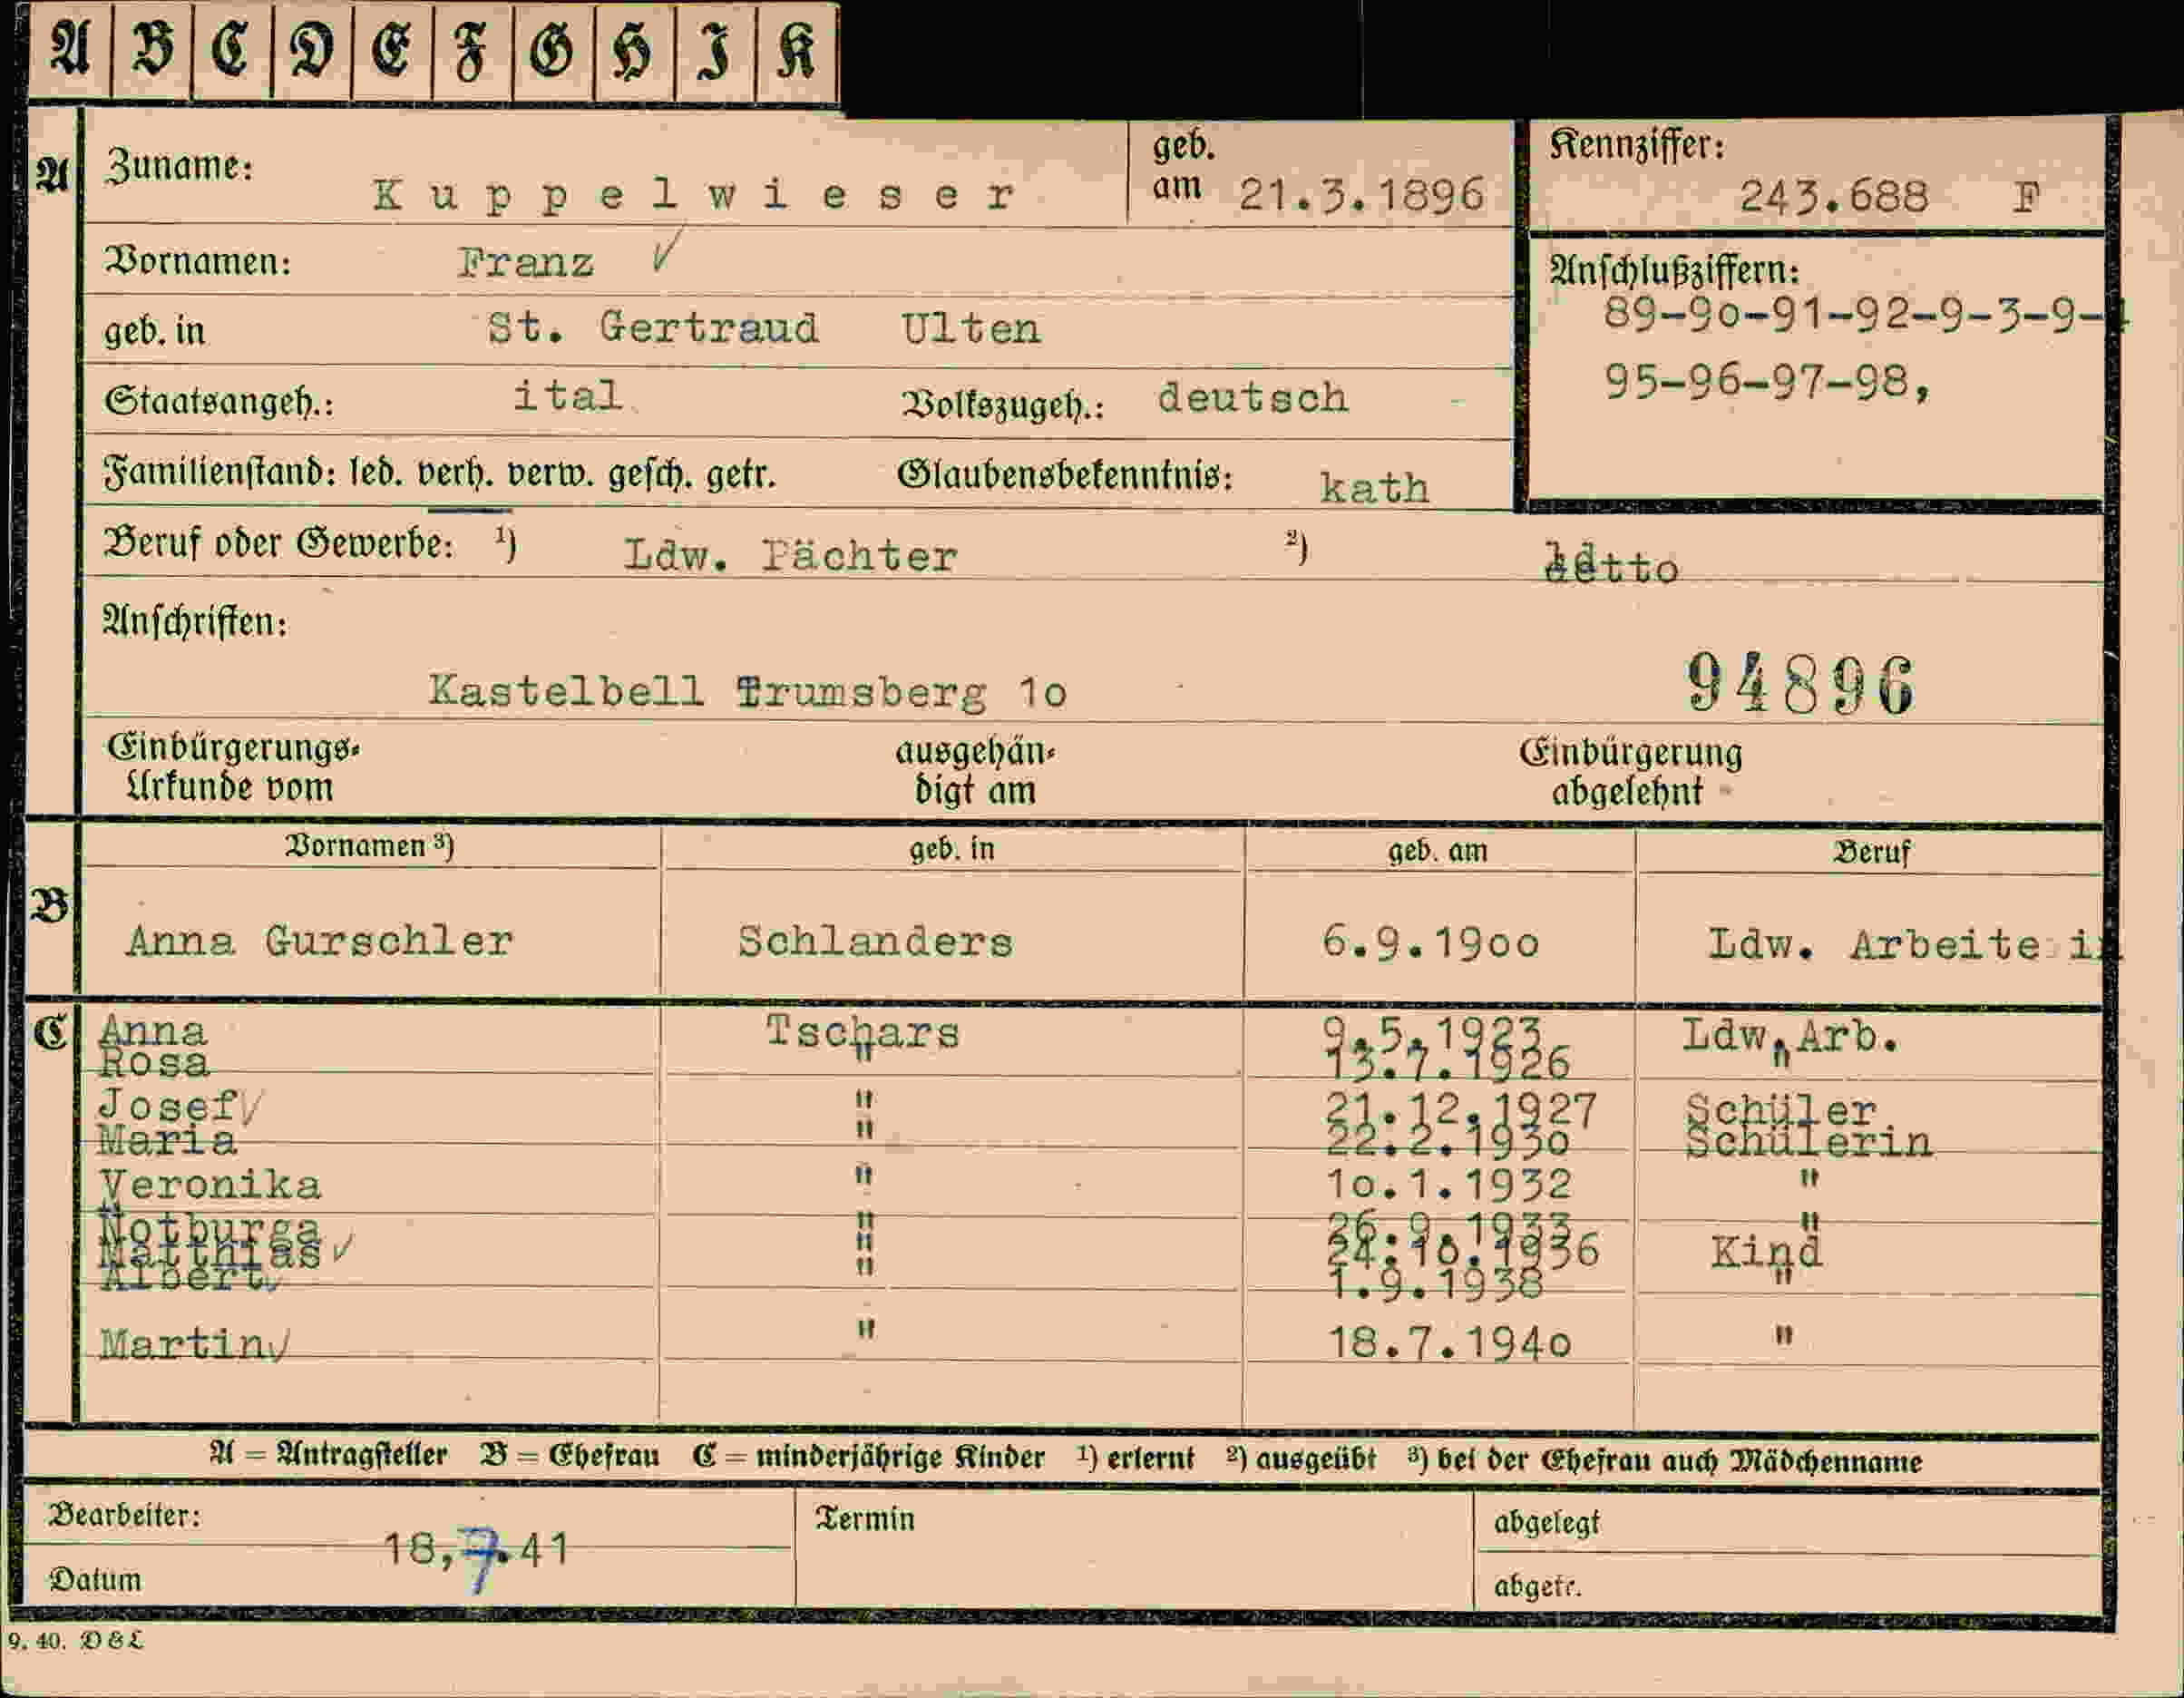 A B C D E F G H I K
A Zuname: Kuppelwieser geb. am 21.3.1896 Kennziffer: 243.688 F
Vornamen: Franz ✓
Anschlußziffern:
89-9o-91-92-9-3-9-4
geb. in St. Gertraud Ulten
95-96-97-98,
Staatsangeh.: ital. Volkszugeh.: deutsch
Familienstand: led. verh. verw. gesch. getr. Glaubensbekenntnis: kath
Beruf oder Gewerbe: 1) Ldw. Pächter 2) detto
Anschriften:
Kastelbell Trumsberg 1o 94896
Einbürgerungs-Urkunde vom ausgehändigt am Einbürgerung abgelehnt
Vornamen 3) geb. in geb. am Beruf
B Anna Gurschler Schlanders 6.9.19oo Ldw. Arbeite in
C Anna Tschars 9.5.1923 Ldw. Arb.
Rosa " 13.7.1926 "
Josef ✓ " 21.12.1927 Schüler
Maria " 22.2.193o Schülerin
Veronika " 1o.1.1932 "
Notburga " 26.9.1933 "
Matthias ✓ " 24.10.1936 Kind
Albert ✓ " 1.9.1938 "
Martin ✓ " 18.7.194o "
A = Antragsteller B = Ehefrau C = minderjährige Kinder 1) erlernt 2) ausgeübt 3) bei der Ehefrau auch Mädchenname
Bearbeiter: Termin abgelegt
18,7.41
Datum abgetr.
9. 40. D & L